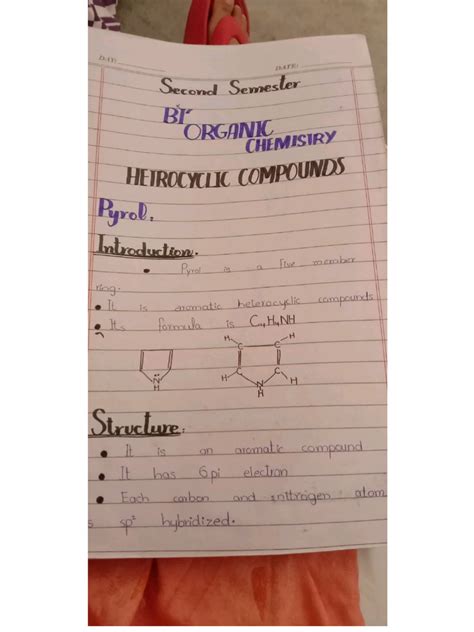 DAY:
DATE:
Second Semester
BI
ORGANIC
CHEMISTRY
HETROCYCLIC COMPOUNDS
Pyrol.
Introduction.
• Pyrol is a five member
ring.
• It is aromatic heteracyclic compounds
• Its formula is C4H4NH
H H
C C
C C
H N H
H
N
H
Structure:
• It is an aromatic compound
• It has 6 pi electron
• Each carbon and nittrogen atom
s sp² hybridized.